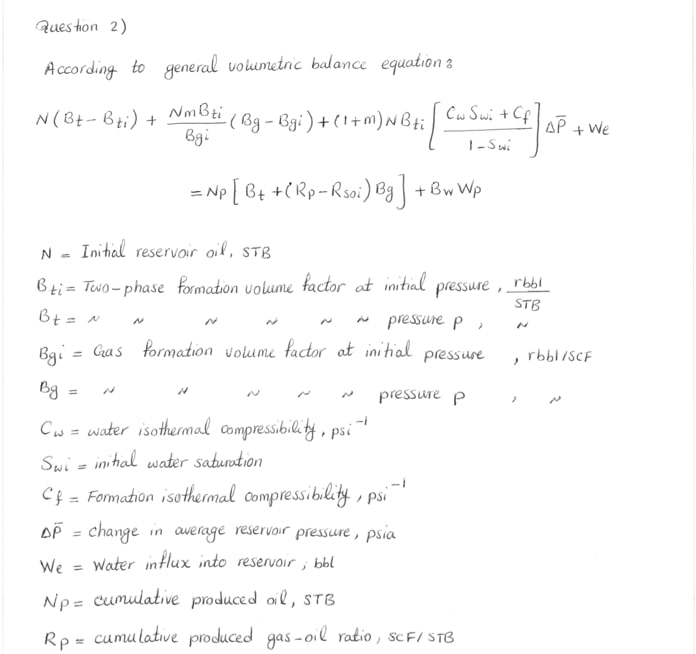 Question 2)
According to general volumetric balance equation:
N(Bt - Bti) + NmBti/Bgi (Bg - Bgi) + (1+m) N Bti [ (Cw Swi + Cf)/(1 - Swi) ] ΔP̅ + We
= Np [ Bt + (Rp - Rsoi) Bg ] + Bw Wp
N = Initial reservoir oil, STB
Bti = Two-phase formation volume factor at initial pressure, rbbl/STB
Bt = ~ ~ ~ ~ ~ ~ pressure p, ~
Bgi = Gas formation volume factor at initial pressure, rbbl/SCF
Bg = ~ ~ ~ ~ ~ pressure p, ~
Cw = water isothermal compressibility, psi⁻¹
Swi = initial water saturation
Cf = Formation isothermal compressibility, psi⁻¹
ΔP̅ = change in average reservoir pressure, psia
We = Water influx into reservoir, bbl
Np = cumulative produced oil, STB
Rp = cumulative produced gas-oil ratio, SCF/STB